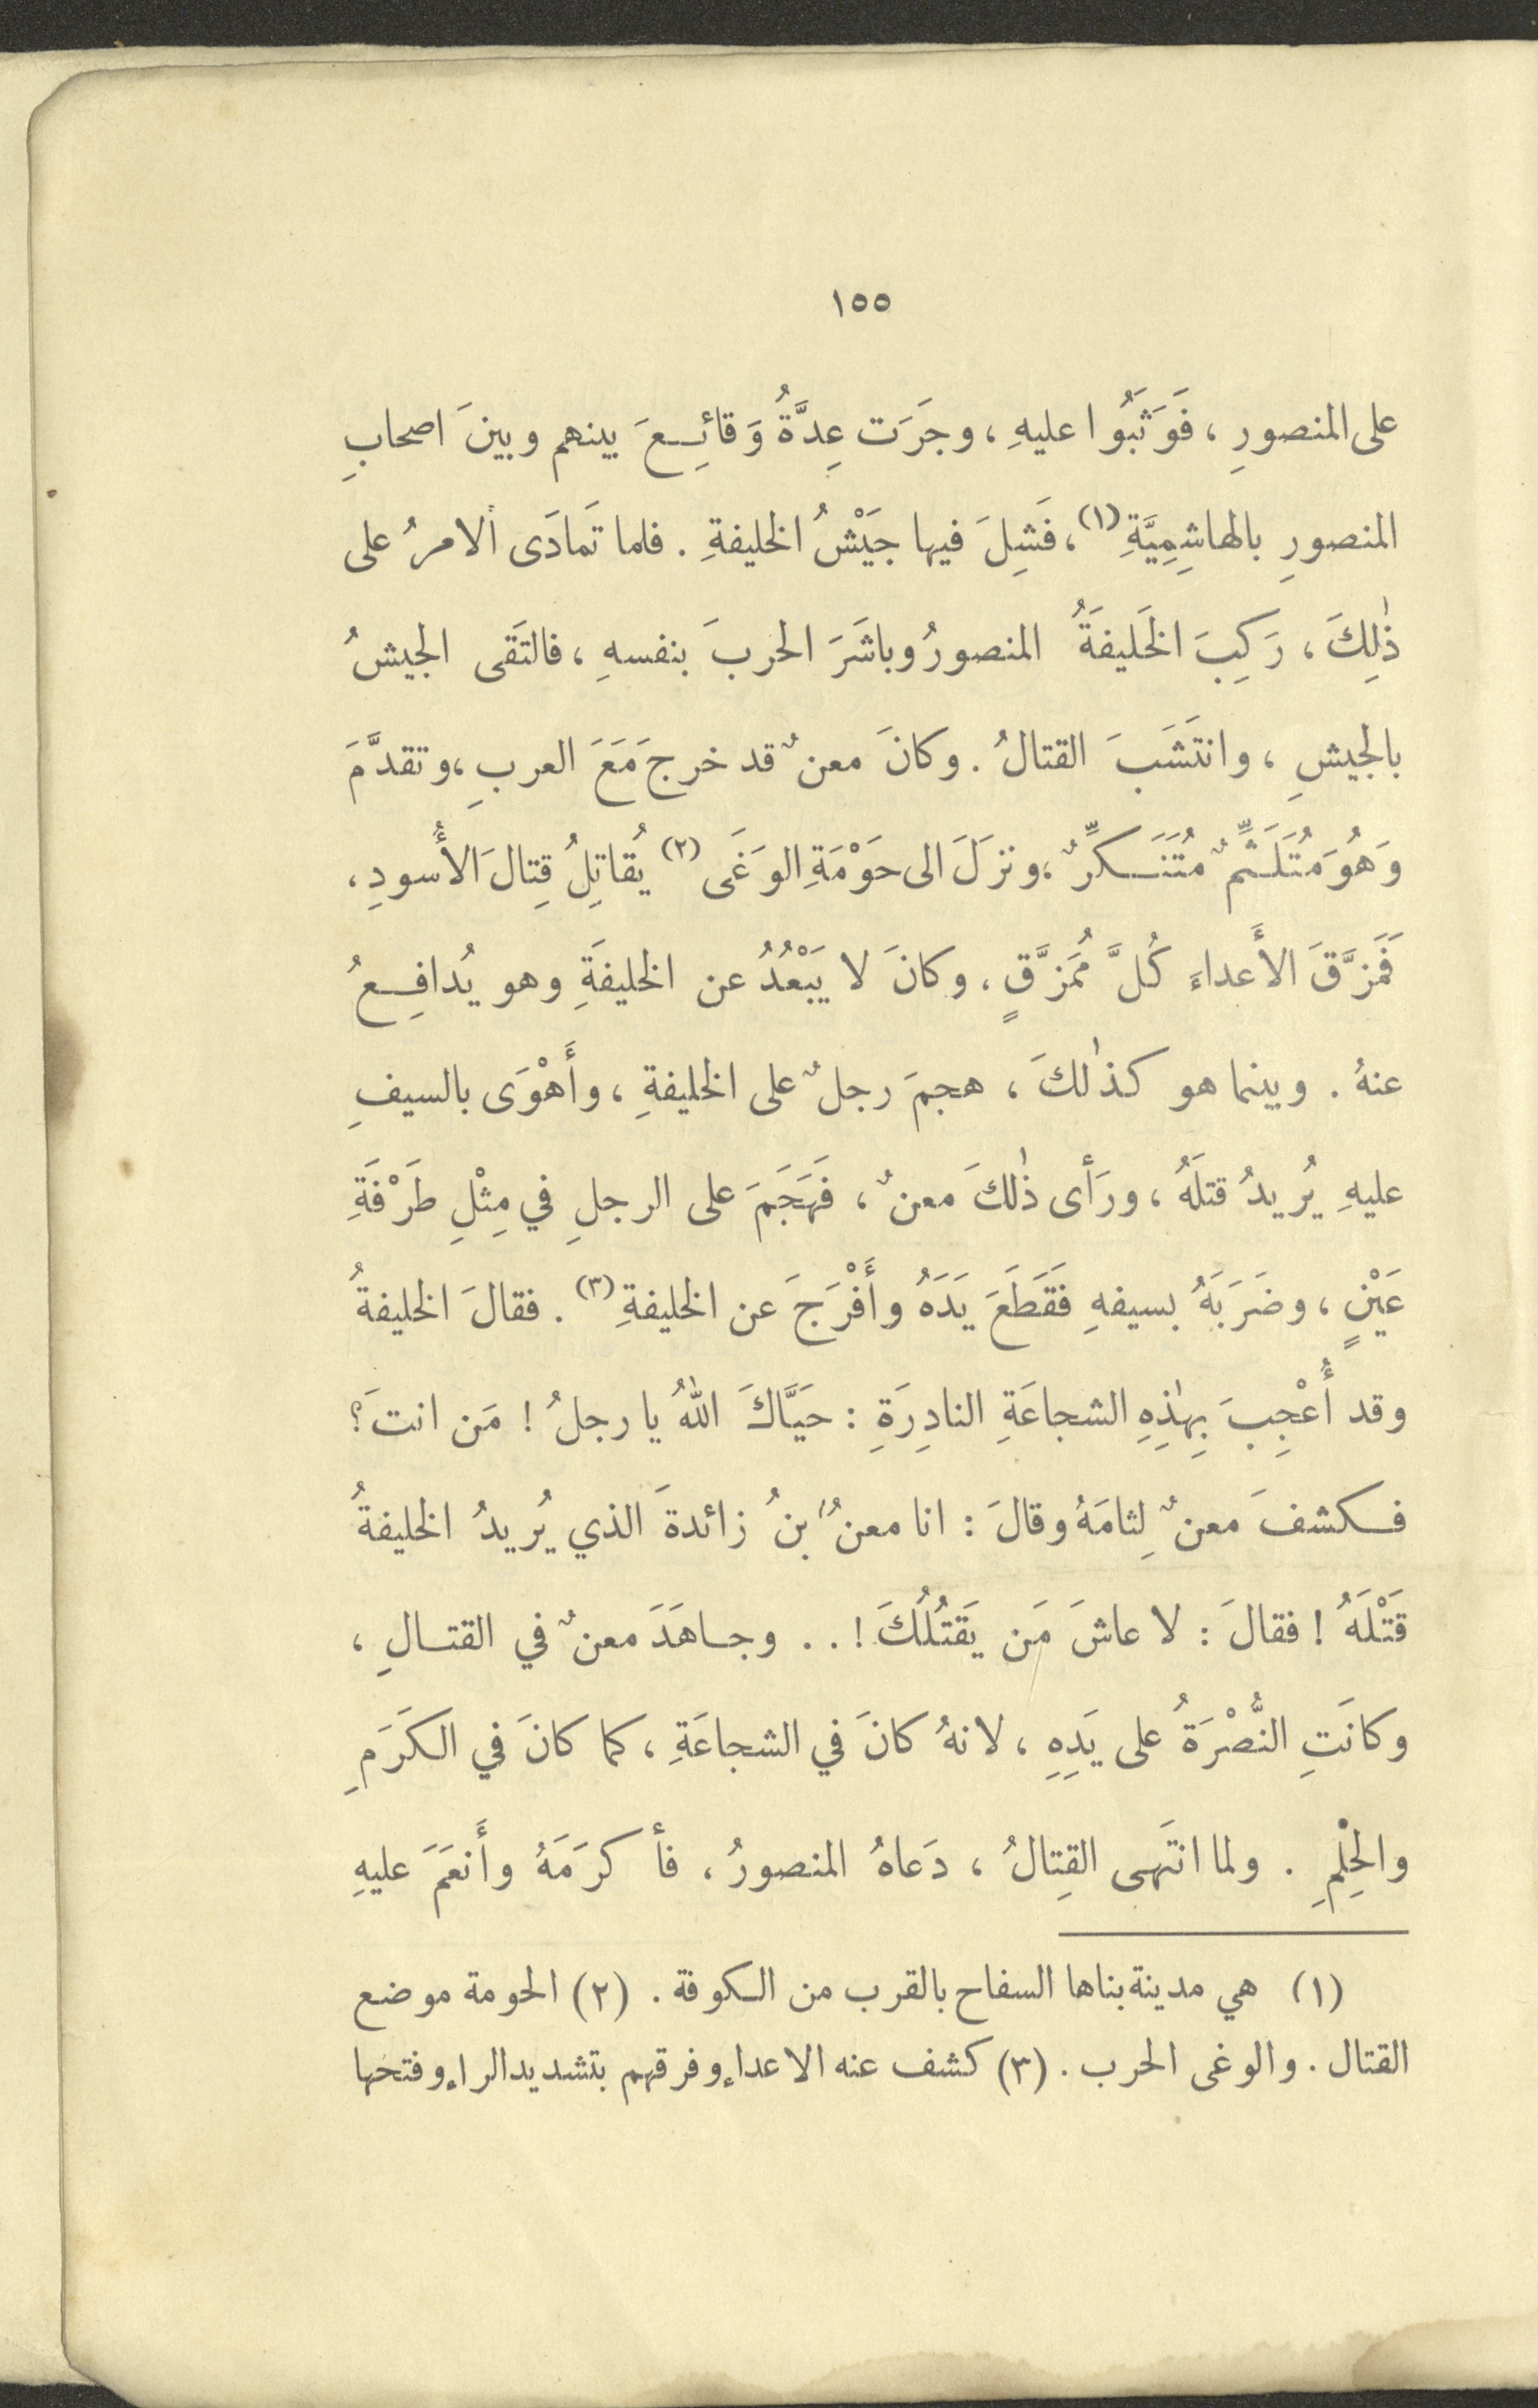 ١٥٥
على المنصورِ ، فَوَثَبُوا عليهِ ، وجرَت عِدَّةُ وَقائِعَ بينهم وبينَ اصحابِ
المنصورِ بالهاشِمِيَّةِ (١) ، فَشِلَ فيها جَيْشُ الخليفةِ . فلما تَمادَى ألامرُ على
ذٰلِكَ ، رَكِبَ الخَليفَةُ المنصورُ وباشَرَ الحربَ بنفسهِ ، فالتَقى الجيشُ
بالجيشِ ، وانتَشَبَ القتالُ . وكانَ معنٌ قد خرجَ مَعَ العربِ ، وتقدَّمَ
وَهُوَ مُتَلَثِّمٌ مُتَنَكِّرٌ ، ونزلَ الى حَوْمَةِ الوَغَى (٢) يُقاتِلُ قِتالَ الأُسودِ ،
فَمَزَّقَ الأَعداءَ كُلَّ مُمَزَّقٍ ، وكانَ لا يَبْعُدُ عن الخليفَةِ وهو يُدافِعُ
عنهُ . وبينما هو كذٰلكَ ، هجمَ رجلٌ على الخليفةِ ، وأَهْوَى بالسيفِ
عليهِ يُريدُ قتلَهُ ، ورَأى ذٰلكَ معنٌ ، فَهَجَمَ على الرجلِ في مِثْلِ طَرْفَةِ
عَيْنٍ ، وضَرَبَهُ بسيفهِ فَقَطَعَ يَدَهُ وأَفْرَجَ عن الخليفةِ (٣) . فقالَ الخليفةُ
وقد أُعْجِبَ بِهٰذِهِ الشجاعَةِ النادِرَةِ : حَيَّاكَ اللهُ يا رجلُ ! مَن انتَ ؟
فكشفَ معنٌ لِثامَهُ وقالَ : انا معنُ بنُ زائدةَ الذي يُريدُ الخليفةُ
قَتْلَهُ ! فقالَ : لا عاشَ مَن يَقتُلُكَ ! . . وجاهَدَ معنٌ في القتالِ ،
وكانَتِ النُّصْرَةُ على يَدِهِ ، لانهُ كانَ في الشجاعَةِ ، كما كانَ في الكَرَمِ
والحِلْمِ . ولما انتَهى القِتالُ ، دَعاهُ المنصورُ ، فأكرَمَهُ وأَنعَمَ عليهِ
(١) هي مدينة بناها السفاح بالقرب من الكوفة . (٢) الحومة موضع
القتال . والوغى الحرب . (٣) كشف عنه الاعداء وفرقهم بتشديد الراء وفتحها